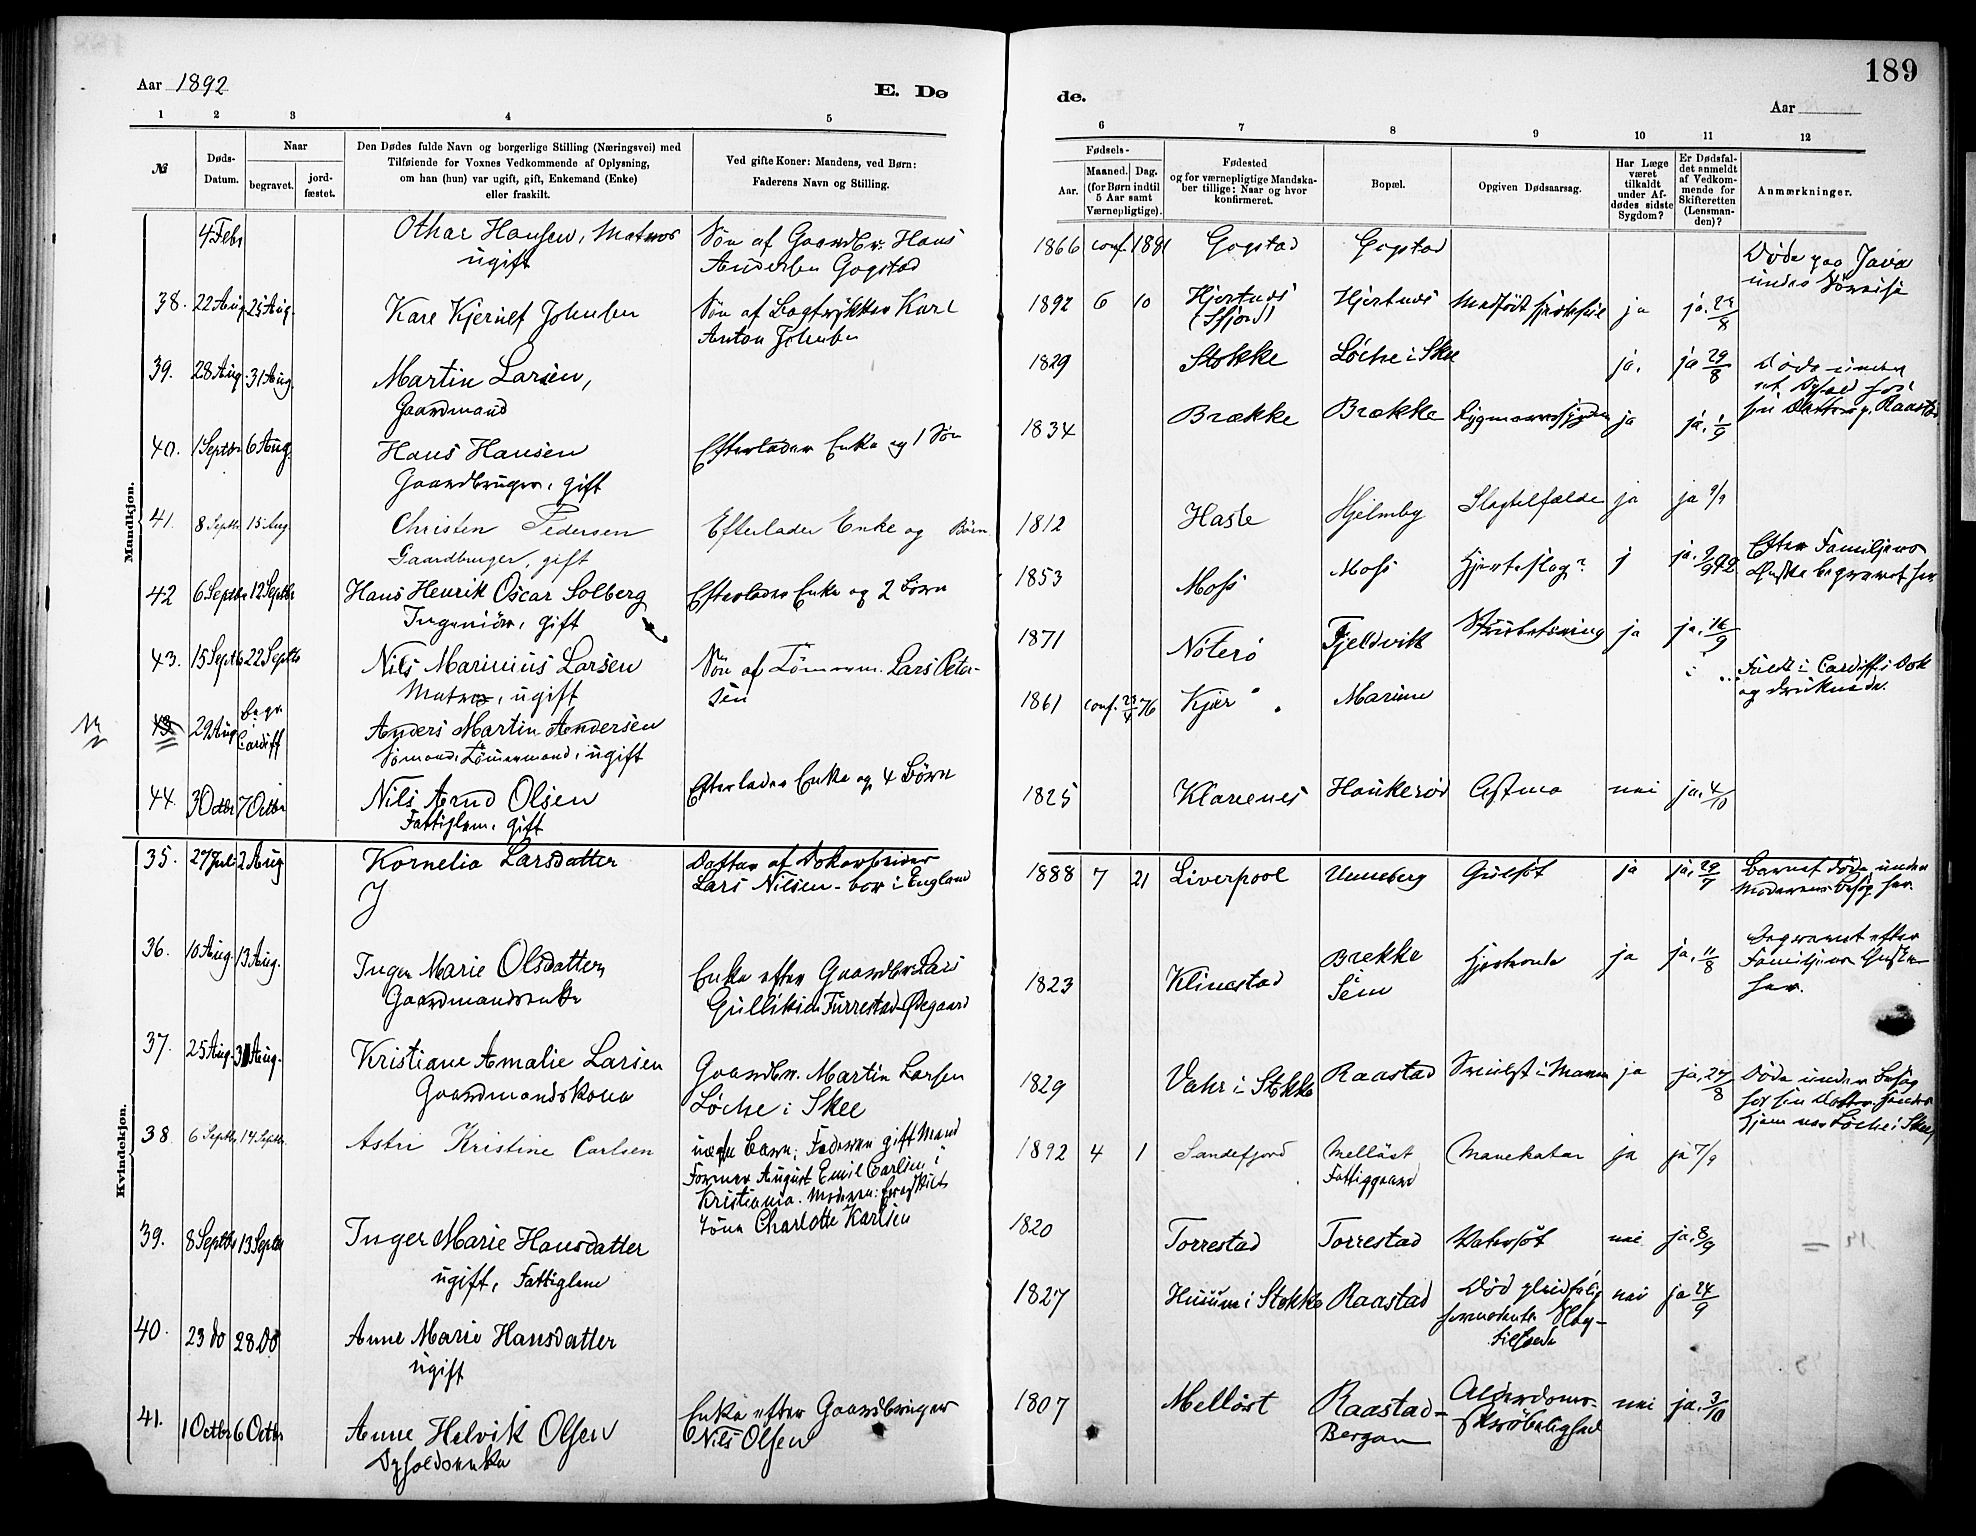 189
Aar 1892
E. Dø
de.
Aar
1 2 3 4 5
6 7 8 9 10 11 12
№
Døds-
Datum.
Naar
begravet.
jord-
fæstet.
Den Dødes fulde Navn og borgerlige Stilling (Næringsvei) med
Tilføiende for Voxnes Vedkommende af Oplysning,
om han (hun) var ugift, gift, Enkemand (Enke)
eller fraskilt.
Ved gifte Koner: Mandens, ved Børn:
Faderens Navn og Stilling.
Fødsels-
Aar.
Maaned. Dag.
(for Børn indtil
5 Aar samt
Værnepligtige).
Fødested
og for værnepligtige Mandska-
ber tillige: Naar og hvor
konfirmeret.
Bopæl.
Opgiven Dødsaarsag.
Har Læge
været
tilkaldt
under Af-
dødes sidste
Sygdom?
Er Dødsfal-
det anmeldt
af Vedkom-
mende for
Skifteretten
(Lensman-
den)?
Anmærkninger.
Mandkjøn.
4 Febr Othar Hansen, Matros
ugift
Søn af Gaardbr. Hans
Andersen Gogstad
1866 conf. 1881 Gogstad Gogstad
Døde paa Java
under Søreise
38. 22 Aug 25 Aug. Kare Kjerulf Johnsen
Søn af Bogtrykker Karl
Anton Johnsen
1892 6 10 Hjertnes
(Sfjord)
Hjertnes Medfødt ja ja. 24/8
39. 28 Aug 31 Aug. Martin Larsen,
Gaardmand
1829 Stokke Løche i Skee ja. ja 29/8
Døde under
et Ophold hos
sin Datter p. Raastad
40. 1 Septbr 6 Aug. Hans Hansen
Gaardbruger, gift
Efterlader Enke og 1 Søn
1834 Brække Brække Rygmarvssygdom ja ja. 1/9
41. 8 Septbr 15 Aug Christen Pedersen
Gaardbruger, gift
Efterlader Enke og Børn
1812 Hasle Hjelmby Slagtilfælde ja ja 9/9
42 6 Septbr 12 Septbr Hans Henrik Oscar Solberg
Ingeniør, gift
Efterlader Enke og 2 Børn
1853 Moss Moss Hjerteslag? j ja. 9/9 92
Efter Familjens
Ønske begravet her
43. 15 Septb 22 Septb Nils Marinius Larsen
Matros, ugift
Søn af Tømmerm. Lars Peter-
sen
1871 Nøterø Fjeldvik ja ja. 16/9
43 29 Aug begr.
Cardiff
Anders Martin Andersen
Sømand, Tømmermand, ugift
1861 conf. 23/4 76 Kjær Marium
Faldt i Cardiff i Dok
og druknede.
44. 3 Octbr 7 Octbr Nils Arnd Olsen
Fattiglem, gift
Efterlader Enke og 4 Børn
1825 Klavenes Haukerød Astma nei ja. 4/10
Kvindekjøn.
35. 27 Juli 2 Aug Kornelia Larsdatter
Datter af Dokarbeider
Lars Nilsen - bor i England
1888 7 21 Liverpool Unneberg Gulsot ja ja. 29/7
Barnet døde under
Moderens Besøg her.
36. 10 Aug. 13 Aug. Inger Marie Olsdatter
Gaardmandsenke
Enke efter Gaardbr. Lars
Gulliksen Furrestad-Ødegaard
1823 Klinestad Brekke
Sem
ja ja. 11/8
Begravet efter
Familjens Ønske
her.
37. 25 Aug. 31 Aug. Kristiane Amalie Larsen
Gaardmandskone
Gaardbr. Martin Larsen
Løche i Skee
1829 Vahr i Stokke Raastad Svulst i Maven ja ja. 27/8
Døde under Besøg
hos sin Datter. Hendes
Hjem var Løche i Skee
38 6 Septbr 14 Septbr. Astri Kristine Carlsen
uægte Barn; Faderen gift Mand
Former August Emil Carlsen i
Kristiania. Moderen: fraskilt
Kone Charlotte Karlsen
1892 4 1 Sandefjord Melløst
Fattiggaard
Mavekatar ja ja 7/9
39. 8 Septbr 13 Septbr Inger Marie Hansdatter
ugift, Fattiglem
1820 Torrestad Torrestad Vatersot nei ja. 8/9
40. 23 do 28 do Anne Marie Hansdatter
ugift
1827 Husum i Stokke Raastad Død pludselig
formodentl. Slag-
tilfælde
nei ja 24/9
41. 1 Octbr 6 Octbr Anne Helvik Olsen
Opholdsenke
Enke efter Gaardbruger
Nils Olsen
1807 Melløst Raastad-
Bergan
Alderdoms-
skrøbelighed
nei ja. 3/10